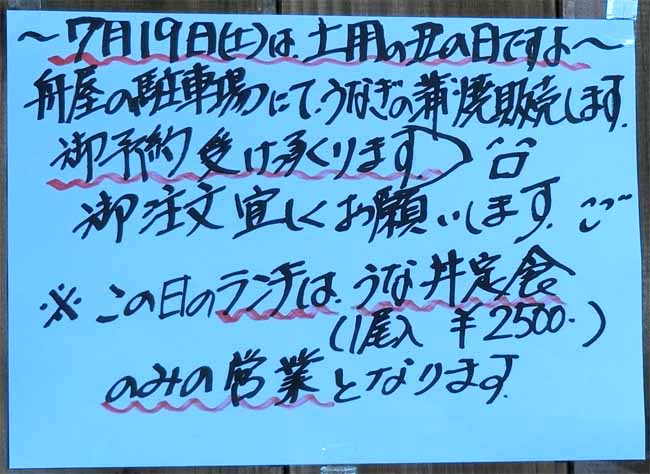 ～7月19日(土)は、土用の丑の日ですよ～
舟屋の駐車場にて、うなぎの蒲焼販売します。
御予約受け承ります
御注文宜しくお願いします。
※この日のランチは、うな丼定食
(1尾入 ¥2500-)
のみの営業となります。